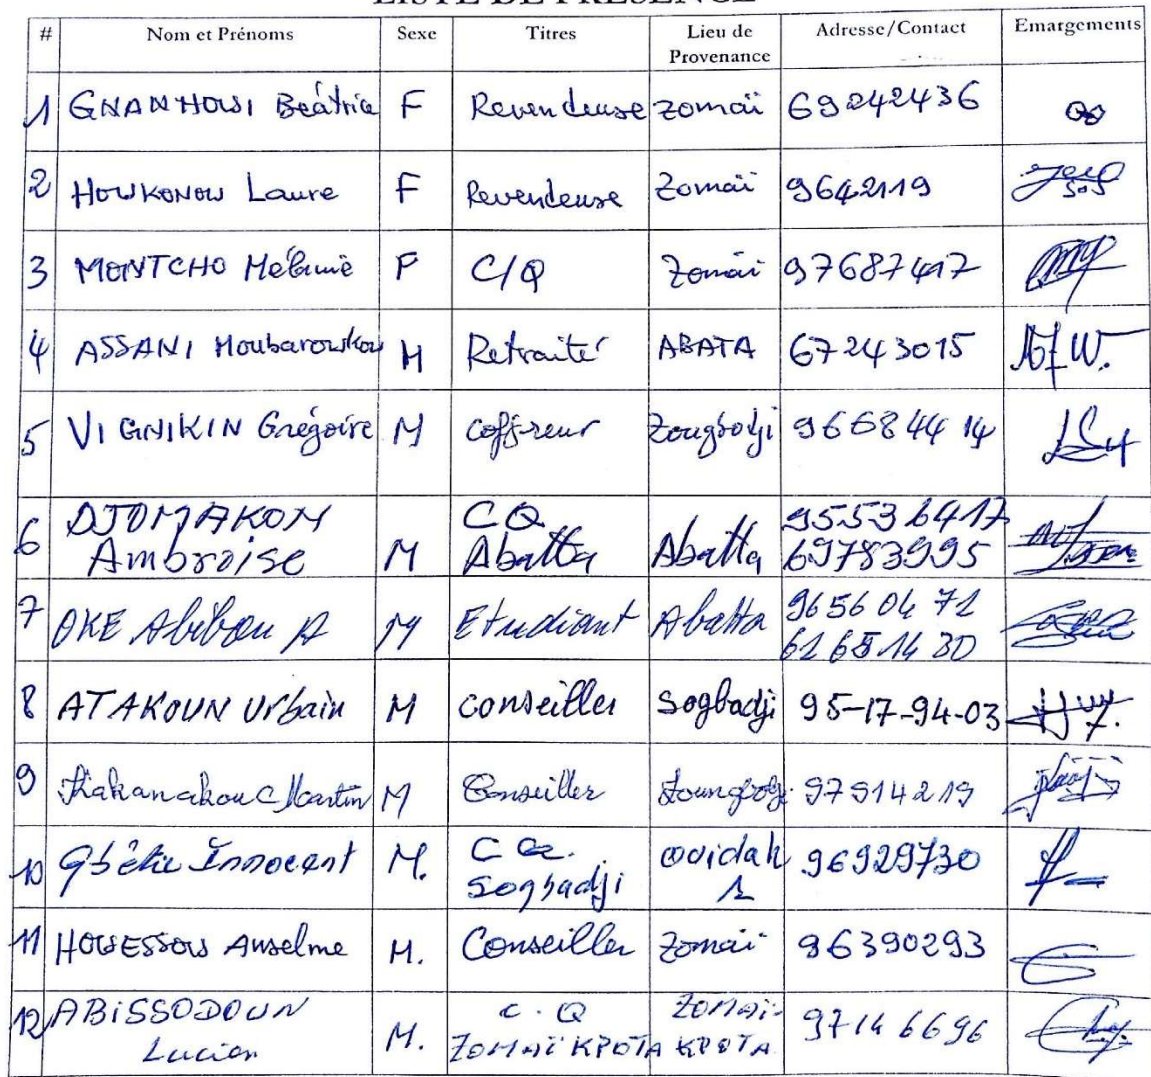 LISTE DE PRESENCE
# Nom et Prénoms Sexe Titres Lieu de Provenance Adresse/Contact Emargements
1 GNANHOUI Béatrice F Revendeuse Zomaï 69242436
2 HOUKONOU Laure F Revendeuse Zomaï 9642119
3 MONTCHO Mélanie F C/Q Zomaï 97687417
4 ASSANI Moubarouskou M Retraité ABATA 67243015
5 VIGNIKIN Grégoire M coffreur Zougbodji 96684414
6 DJOMAKON Ambroise M CQ Abatta Abatta 95536417 69783995
7 OKE A M Etudiant Abatta 96560472 61651430
8 ATAKOUN Urbain M conseiller Sogbadji 95-17-94-03
9 Martin M Conseiller 97914219
10 Gbétie Innocent M. C Q. Sogbadji Ouidah 1 96929730
11 HOUESSOU Anselme M. Conseiller Zomaï 96390293
12 ABISSODOUN Lucien M. C.Q ZOMAÏ KPOTA ZOMAÏ-KPOTA 97146696